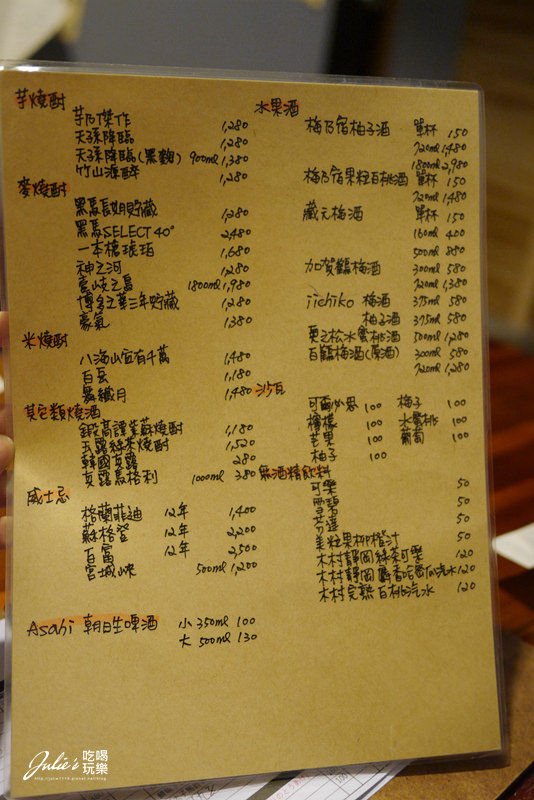 芋燒酎
芋乃傑作 1,280
天孫降臨 1,280
天孫降臨(黑麴) 900ml 1,380
竹山源醉 1,280
麥燒酎
黑馬長期貯藏 1,280
黑馬SELECT 40° 2,480
一本槽琥珀 1,680
神之河 1,280
壹岐之島 1800ml 1,980
博多之華三年貯藏 1,280
豪氣 1,380
米燒酎
八海山宜有千萬 1,480
百岳 1,180
舞纖月 1,480
其它類燒酒
鍛高譚紫蘇燒酎 1,180
玉露綠茶燒酎 1,520
韓國真露 280
真露馬格利 1000ml 380
威士忌
格蘭菲迪 12年 1,400
蘇格登 12年 2,200
百富 12年 2,500
宮城峽 500ml 1,200
Asahi 朝日生啤酒 小 350ml 100
大 500ml 130
水果酒
梅乃宿柚子酒 單杯 150
720ml 1,480
1800ml 2,980
梅乃宿果粒白桃酒 單杯 150
720ml 1,480
藏元梅酒 單杯 150
160ml 400
500ml 850
加賀鶴梅酒 300ml 580
720ml 1,380
iichiko 梅酒 375ml 580
柚子酒 375ml 580
栗之松水蜜桃酒 500ml 1,280
百鶴梅酒(原酒) 300ml 580
720ml 1,280
沙瓦
可爾必思 100 梅子 100
檸檬 100 水蜜桃 100
芒果 100 葡萄 100
柚子 100
無酒精飲料
可樂 50
雪碧 50
芬達 50
美粒果柳橙汁 50
木村靜岡綠茶可樂 120
木村靜岡麝香哈密瓜汽水 120
木村完熟白桃汽水 120
Julie's 吃喝
玩樂